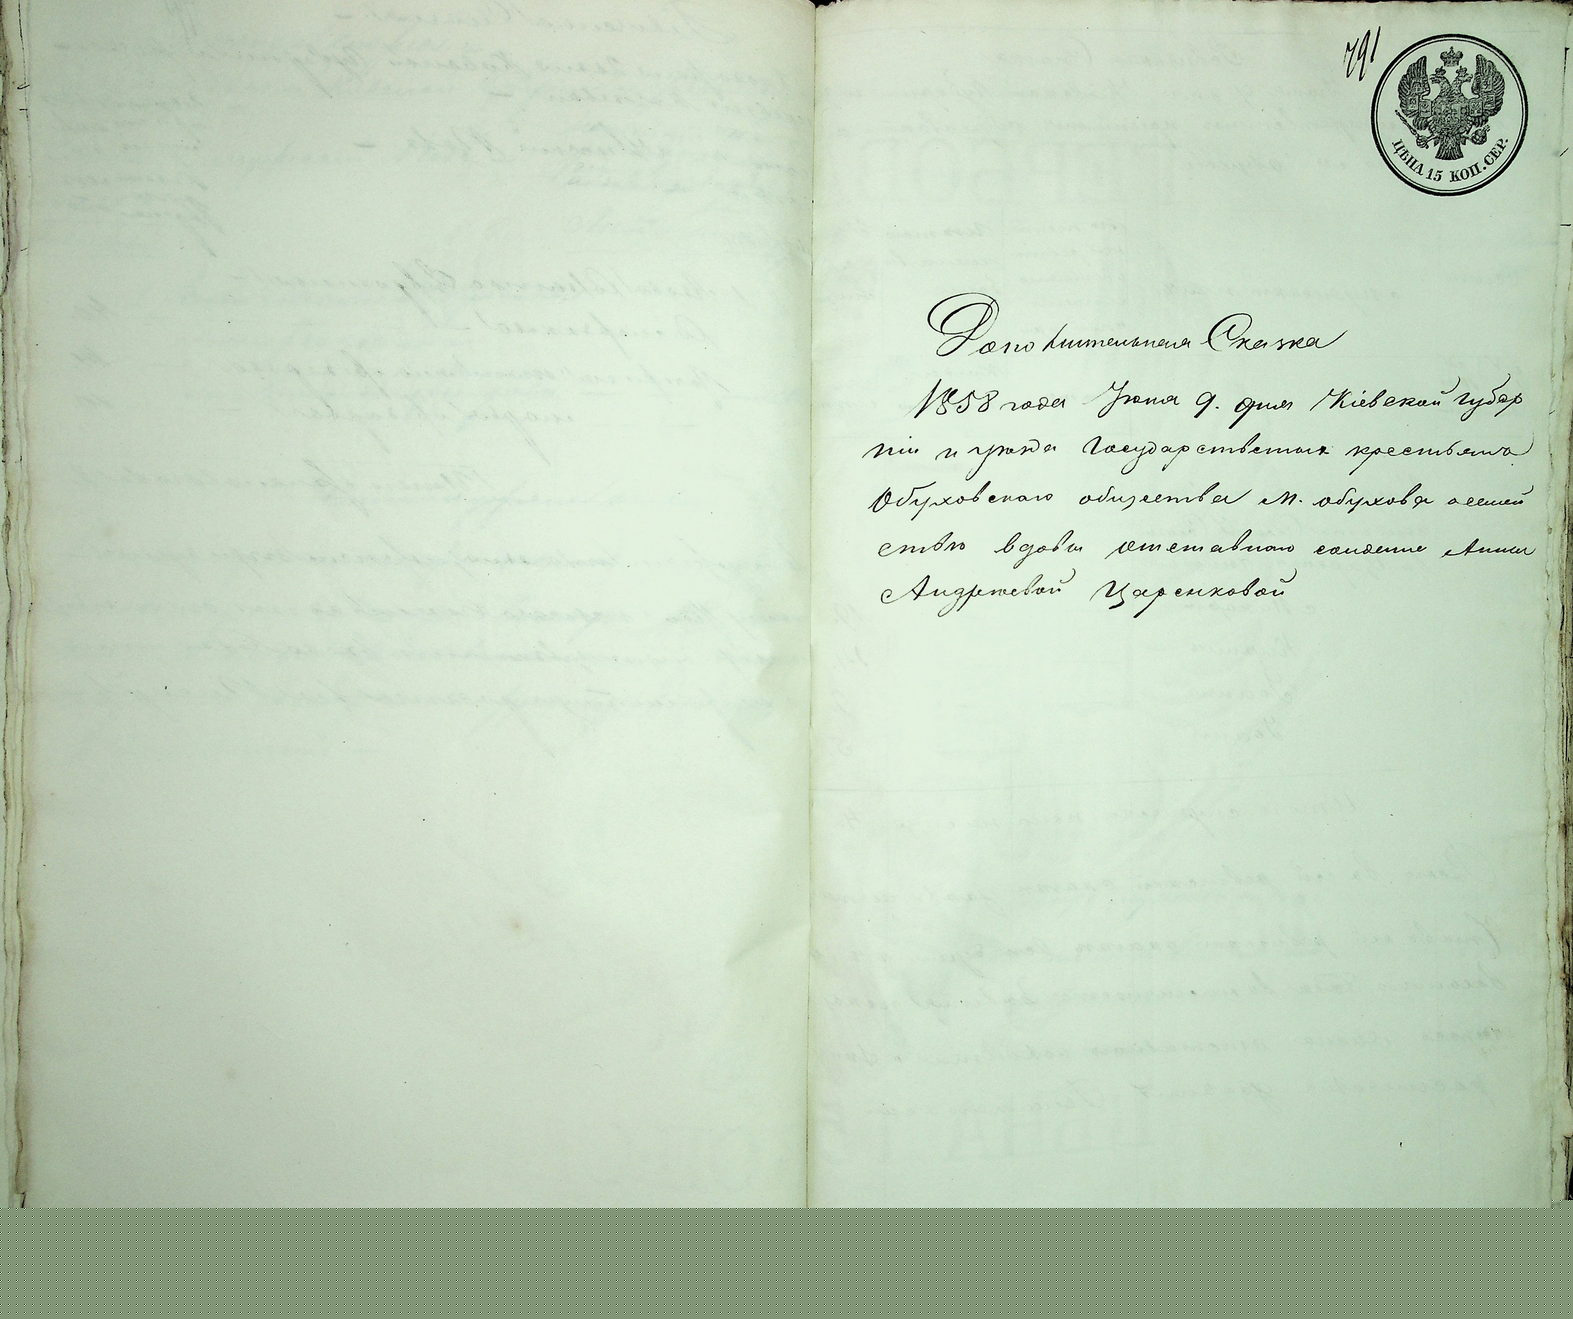 791
ЦѢНА 15 КОП. СЕР.
Дополнительная Сказка
1858 года Іюня 9. дня Кіевской губер
ніи и уѣзда Государственныхъ крестьянъ
Обуховскаго общества м. обухова о семей
ствѣ вдовы отставнаго солдата Анны
Андреевой Царенковой